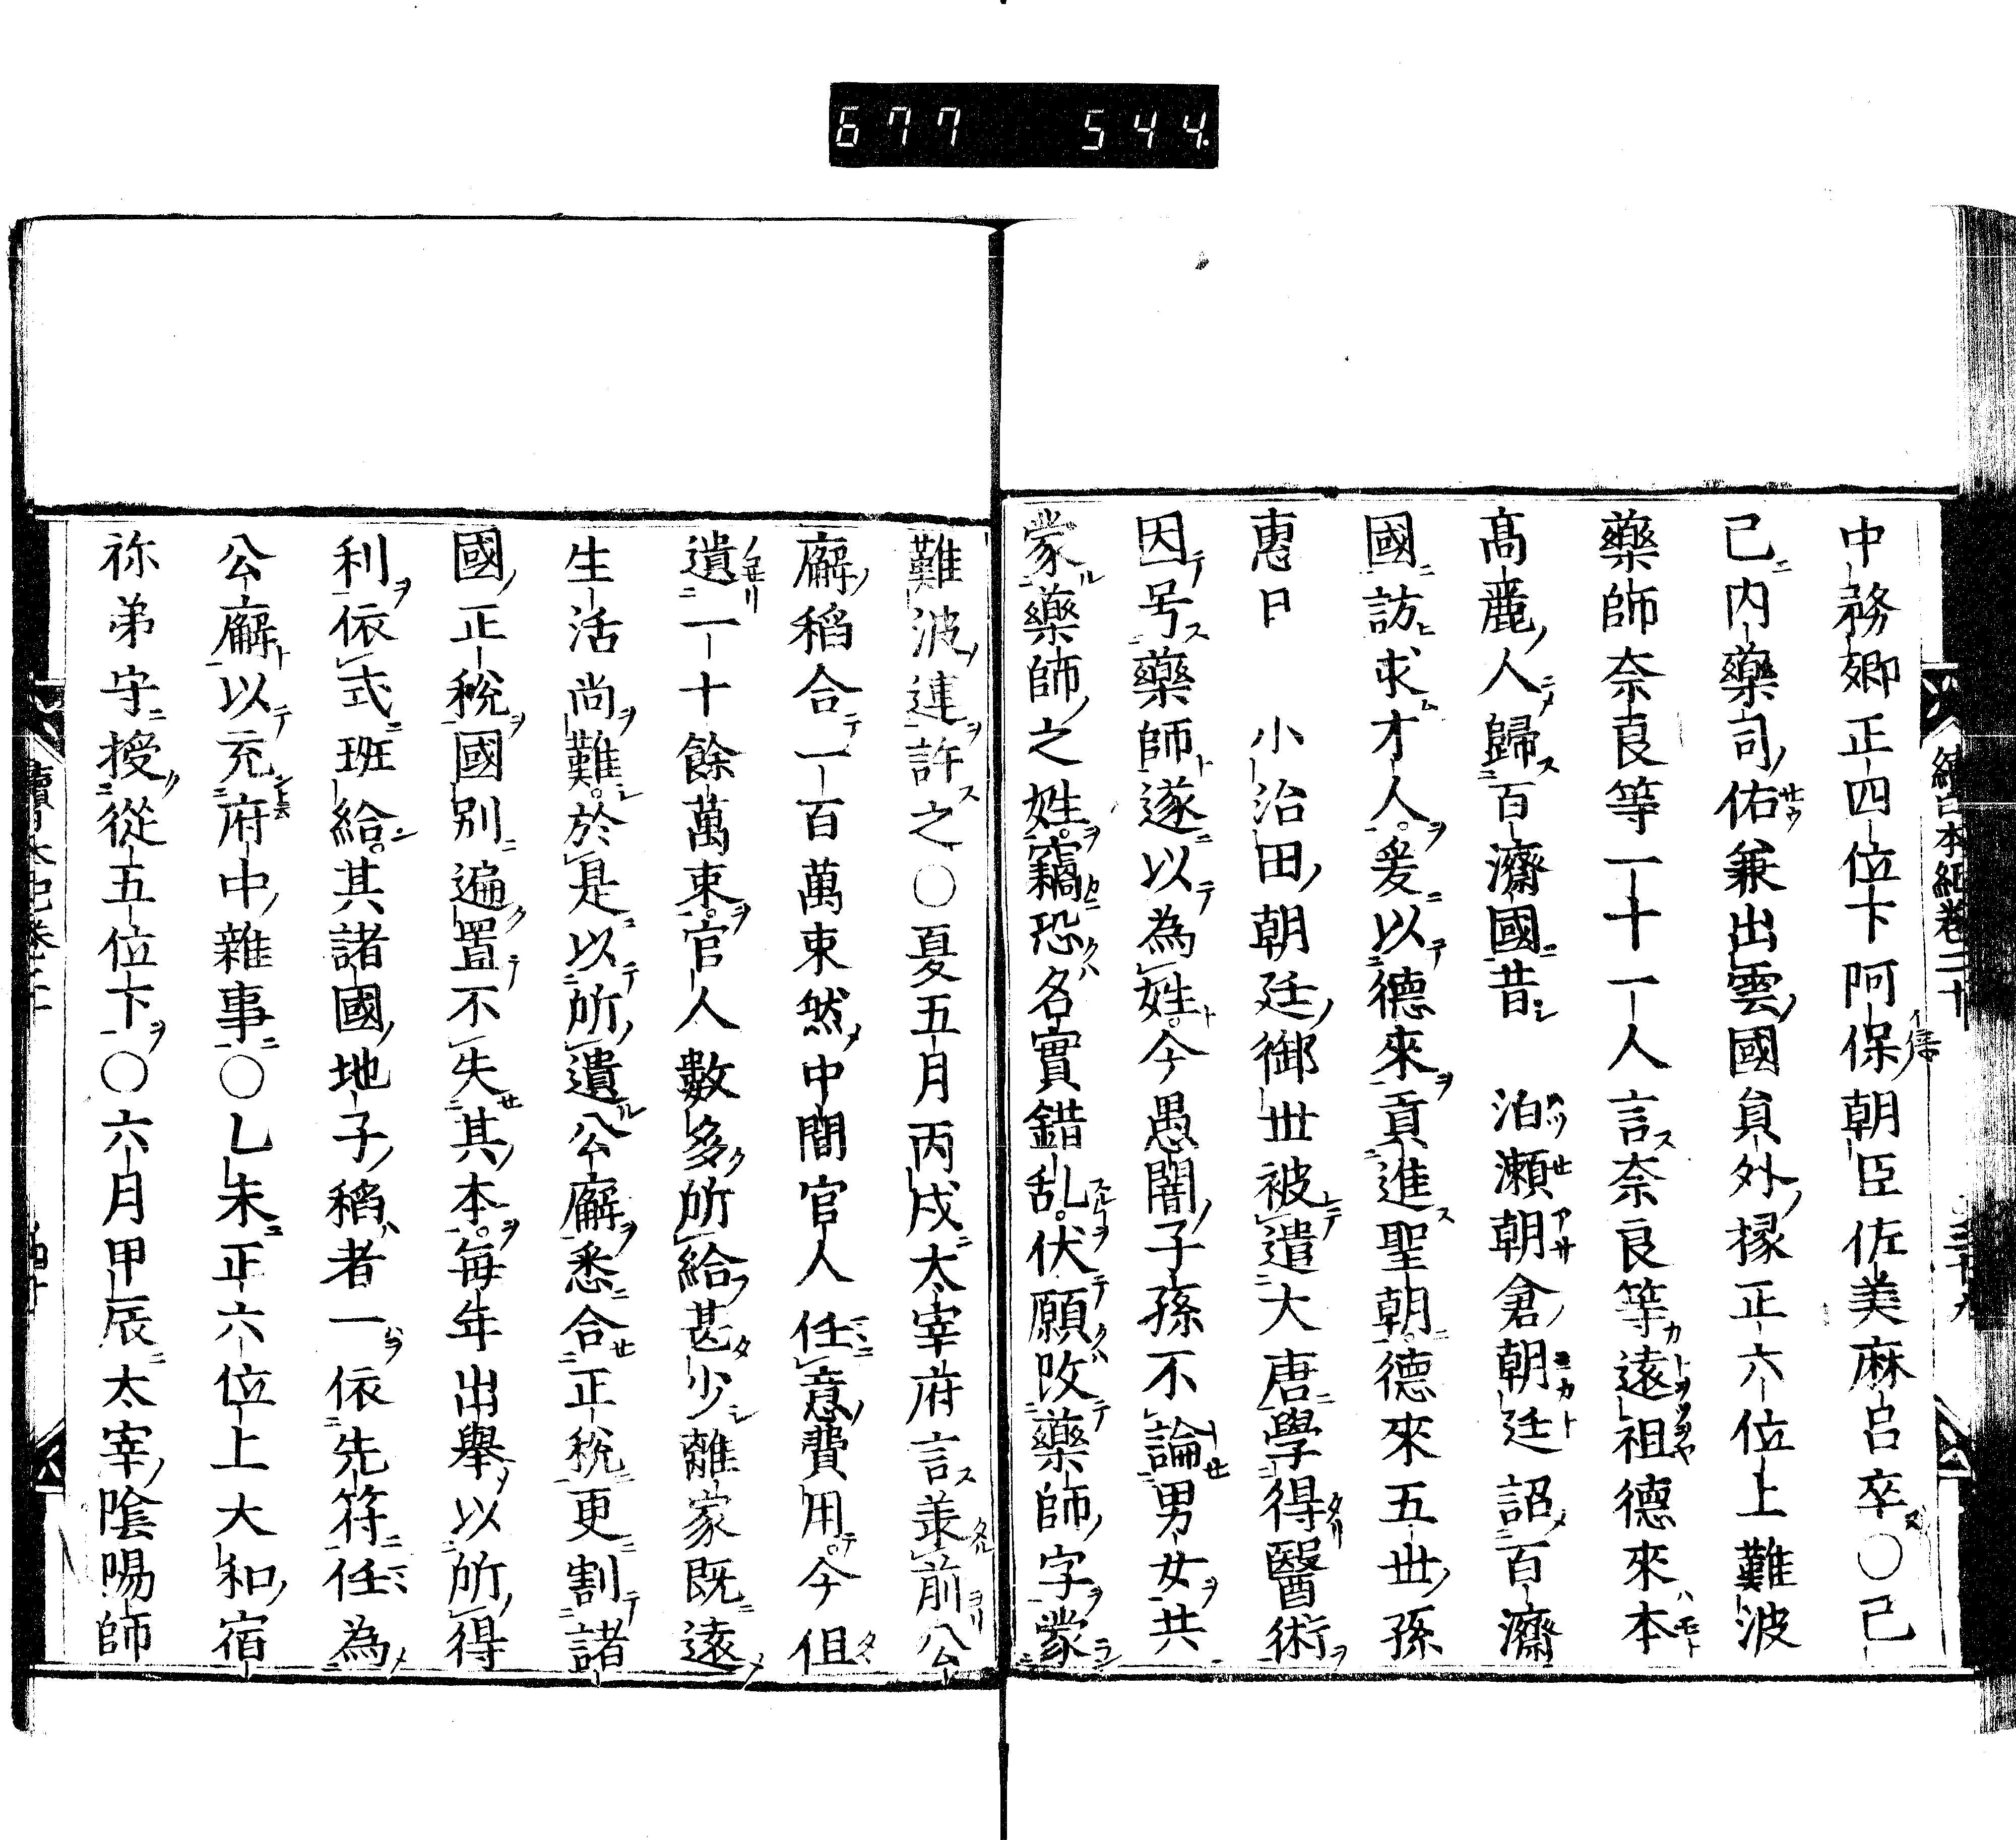 677 544
續日本紀卷二十
中務卿正四位下阿保朝臣佐美麻呂卒○己
巳内藥司佑兼出雲國員外掾正六位上難波
藥師奈良等一十一人言奈良等遠祖德來本
髙麗人歸百濟國昔 泊瀬朝倉朝廷詔百濟
國訪求才人爰以德來貢進聖朝德來五世孫
惠日 小治田朝廷御世被遣大唐學得醫術
因号藥師遂以為姓今愚闇子孫不論男女共
蒙藥師之姓竊恐名實錯乱伏願改藥師字蒙
難波連許之○夏五月丙戌太宰府言羡前公
廨稻合一百萬束然中間官人任意費用今但
遺一十餘萬束官人數多所給甚少離家既遠
生活尚難於是以所遺公廨悉合正税更割諸
國正税國別遍置不失其本每年出舉以所得
利依式班給其諸國地子稻者一依先符任為
公廨以充府中雜事○乚未正六位上大和宿
祢弟守授從五位下○六月甲辰太宰陰陽師